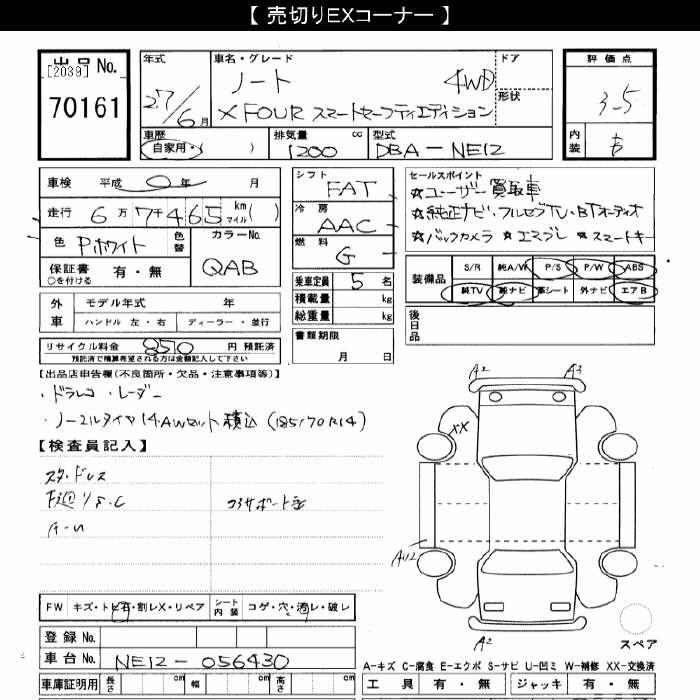 【 売切りEXコーナー 】
出品 No.
[2039]
70161
年式
27/6月
車名・グレード
ノート 4WD
X FOUR スマートセーフティエディション
ドア
形状
評価点
3-5
内装
車歴
自家用・( )
排気量 cc
1200
型式
DBA-NE12
車検 平成 0年 月
走行 6万7千465 km マイル( )
色 Pホワイト 色替
カラーNo.
QAB
保証書 有・無
○を付ける
外車
モデル年式 年
ハンドル 左・右 ディーラー・並行
リサイクル料金 8510 円 預託済
預託済で精算希望される方は金額記入して下さい
シフト
FAT
冷房
AAC
燃料
G
乗車定員 5 名
積載量 kg
総重量 kg
書類期限
月 日
セールスポイント
☆ユーザー買取車
☆純正ナビ・フルセグTV・BTオーディオ
☆バックカメラ ☆エマブレ ☆スマートキー
装備品
S/R 純A/W P/S P/W ABS
純TV 純ナビ 革シート 外ナビ エアB
後日品
【出品店申告欄(不良箇所・欠品・注意事項等)】
・ドラレコ ・レーダー
・ノーマルタイヤ14AWセット積込 (185/70R14)
【検査員記入】
スタッドレス
下廻りS.C
コアサポート歪
A2 A3
XX
AU2
A2
スペア
FW キズ・トビ石・割レX・リペア
シート内装 コゲ・穴・汚レ・破レ
登録 No.
車台 No. NE12-056430
車庫証明用 長さ cm 幅 cm 高さ cm
A-キズ C-腐食 E-エクボ S-サビ U-凹ミ W-補修 XX-交換済
工具 有・無 ジャッキ 有・無